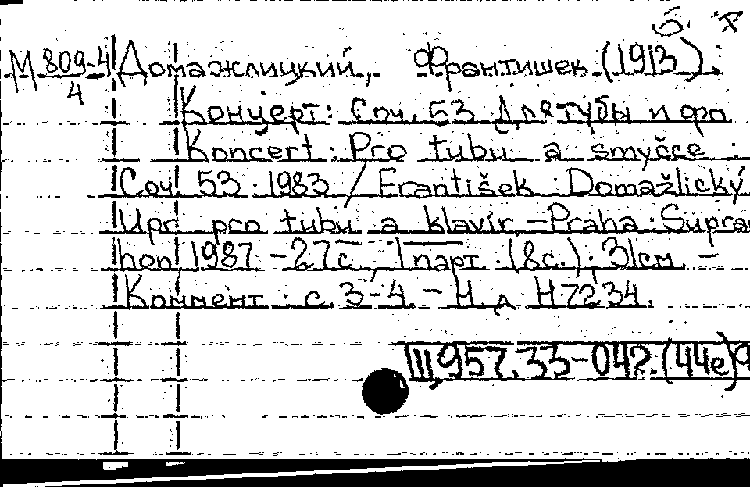 М 809-4/4 Домажлицкий, Франтишек (1913).
Концерт: Соч. 53 Для тубы и фп
Koncert: Pro tubu a smyčce:
Соч 53. 1983 / František Domažlický
Upr pro tubu a klavír, – Praha: Supra
hon 1987. – 27 с, 1 парт. (8с.); 31см –
Коммент: с. 3-4. – Н. д Н 7234.
III, 957. 33-04